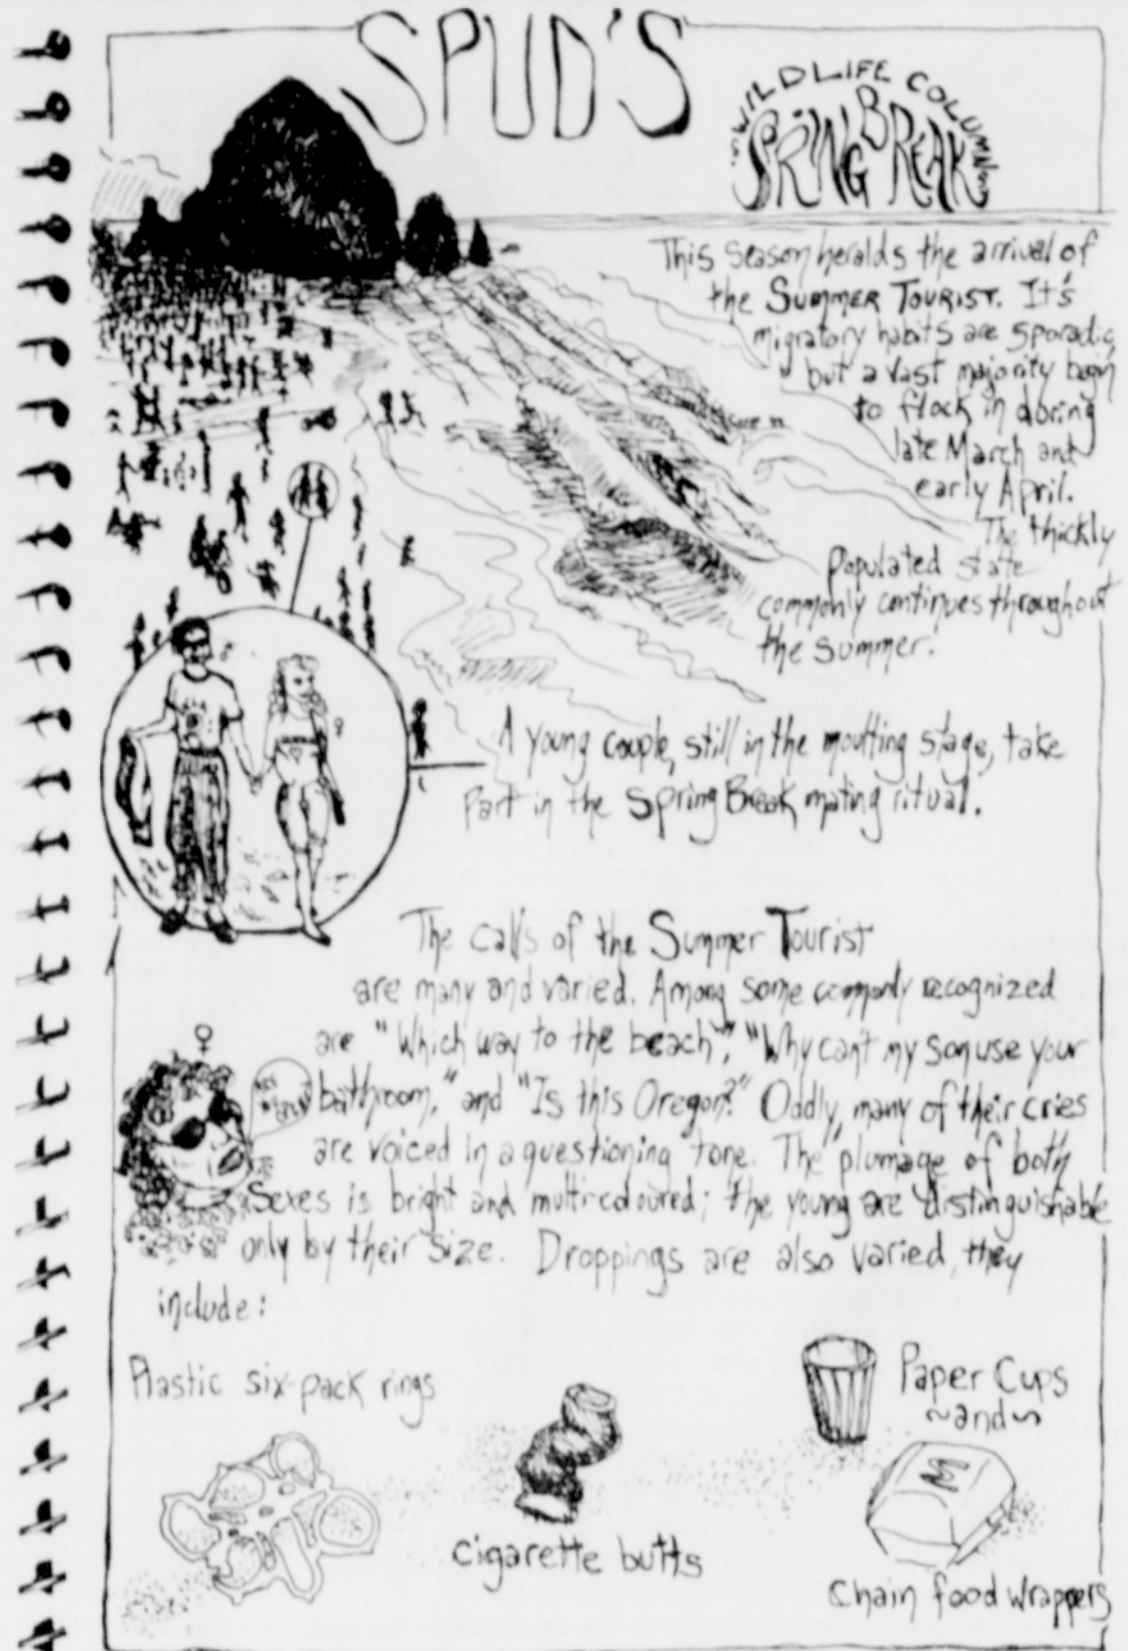 SPUD'S
WILDLIFE COLUMN
SPRING BREAK
This season heralds the arrival of
the SUMMER TOURIST. It's
migratory habits are sporadic,
but a vast majority begin
to flock in during
late March and
early April.
The thickly
populated state
commonly continues throughout
the summer.
A young couple, still in the moulting stage, take
Part in the Spring Break mating ritual.
The calls of the Summer Tourist
are many and varied. Among some commonly recognized
are "Which way to the beach", "Why can't my son use your
bathroom," and "Is this Oregon?" Oddly, many of their cries
are voiced in a questioning tone. The plumage of both
Sexes is bright and multi-coloured; the young are distinguishable
only by their size. Droppings are also varied, they
include:
Plastic six-pack rings
Paper Cups
~and~
M
cigarette butts
Chain food wrappers